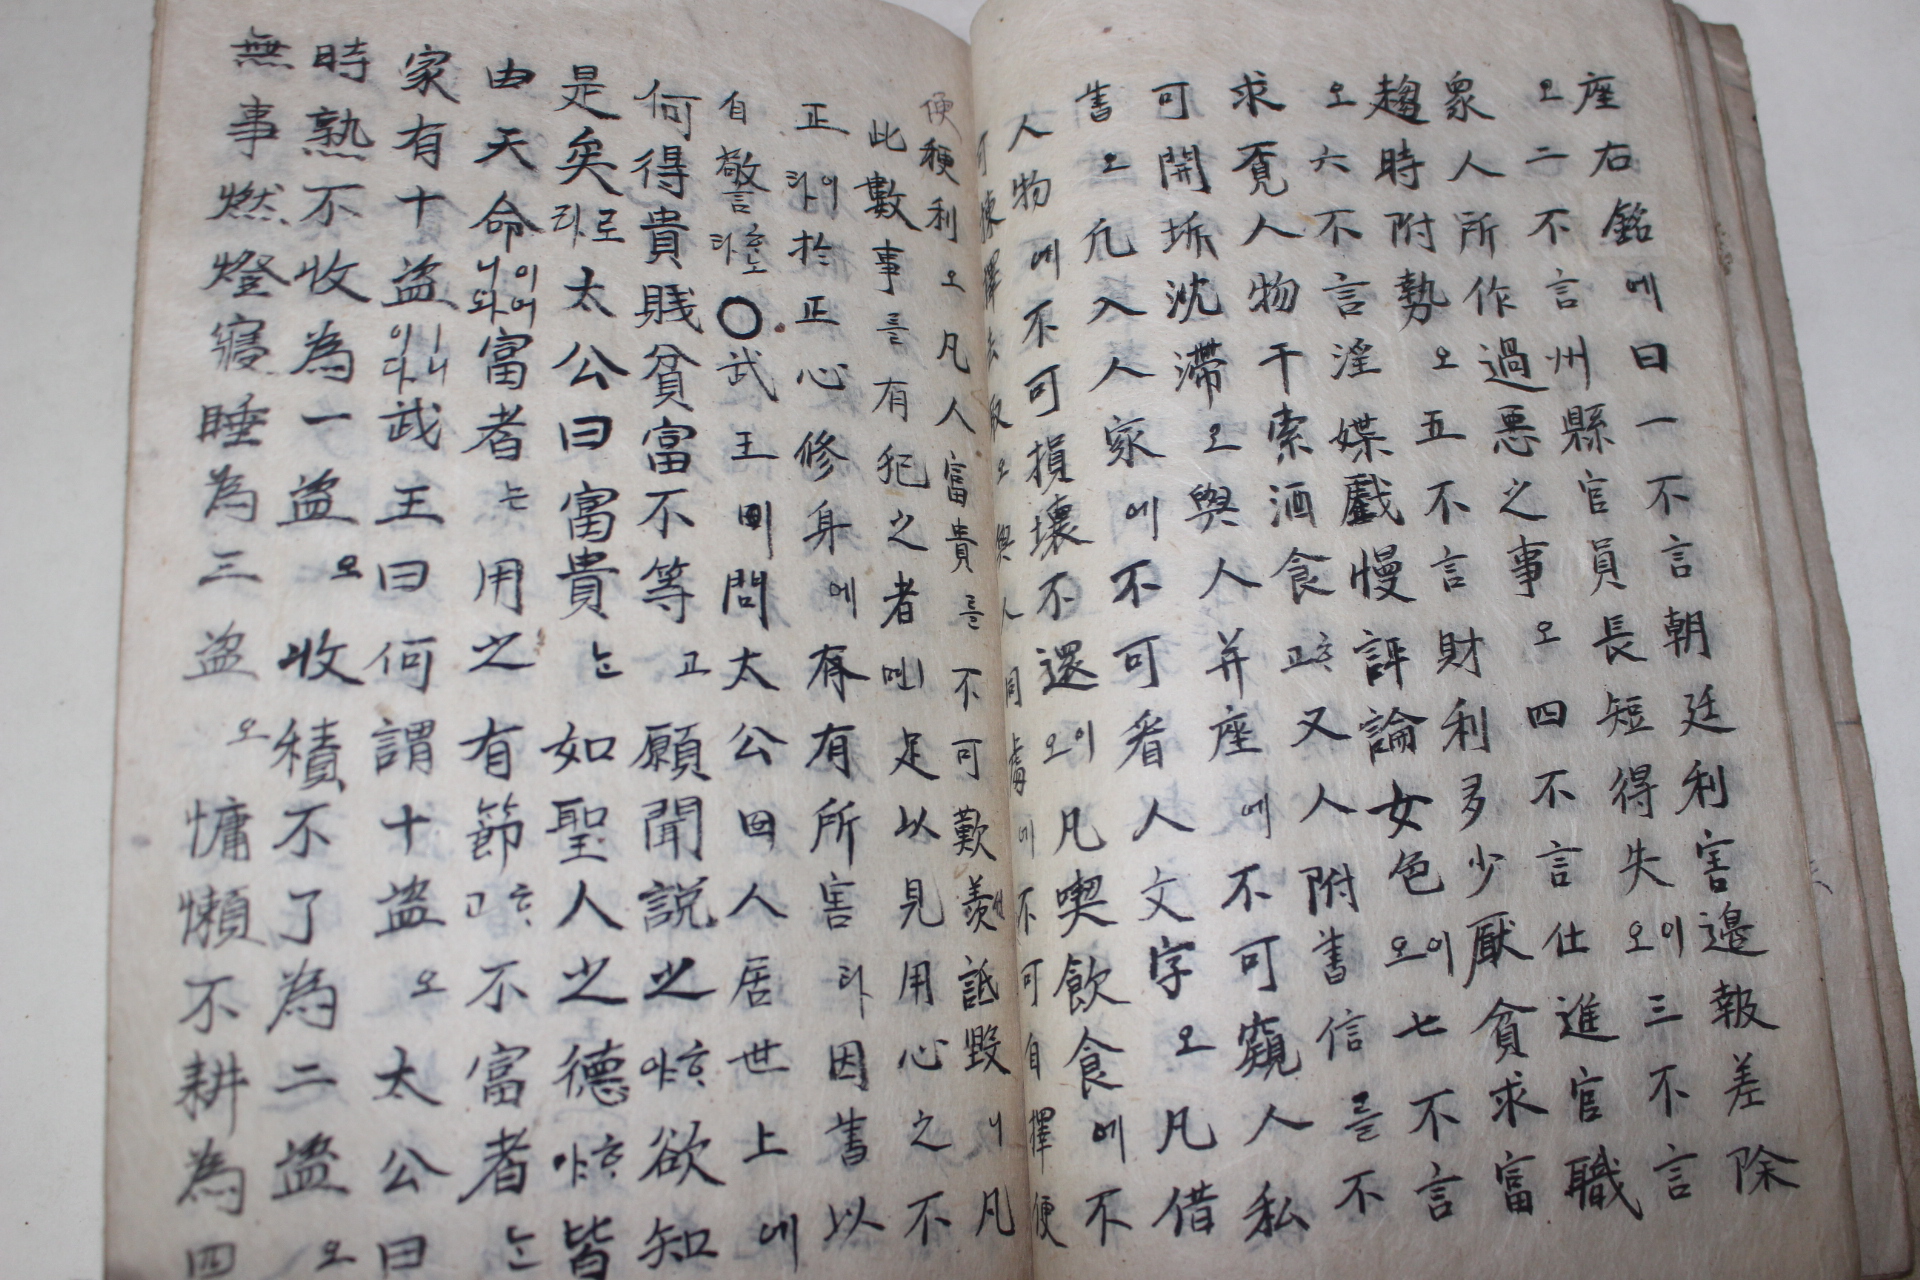 座右銘에曰一不言朝廷利害邊報差除
오二不言州縣官員長短得失이오三不言
衆人所作過惡之事오四不言仕進官職
趨時附勢오五不言財利多少厭貧求富
오六不言淫媟戱慢評論女色이오七不言
求覔人物干索酒食고又人附書信를不
可開坼沈滯오與人并座에不可窺人私
書오凡入人家에不可看人文字오凡借
人物에不可損壞不還이오凡喫飮食에不
可揀擇去取오與人同處에不可自擇便
便穩利오凡人富貴를不可歎羨詆毁니凡
此數事를有犯之者면足以見用心之不
正이라於正心修身에有有所害라因書以
自警노라○武王이問太公曰人居世上에
何得貴賤貧富不等고願聞說之야欲知
是矣로라太公曰富貴는如聖人之德야皆
由天命이어니와富者는用之有節고不富者는
家有十盜이니이다武王曰何謂十盜오太公曰
時熟不收爲一盜오收積不了爲二盜오
無事燃燈寢睡爲三盜오慵懶不耕爲四